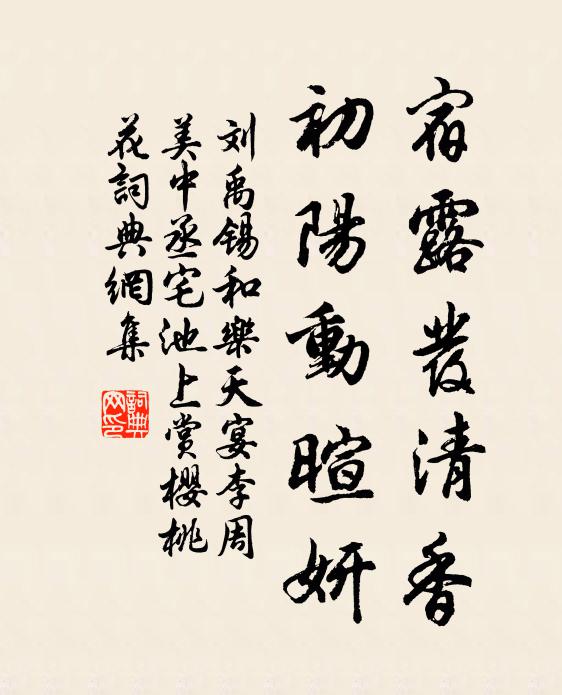 宿露發清香
初陽動暄妍
刘禹锡和樂天宴李周
美中丞宅池上赏櫻桃
花詞典網集
詞典
网印